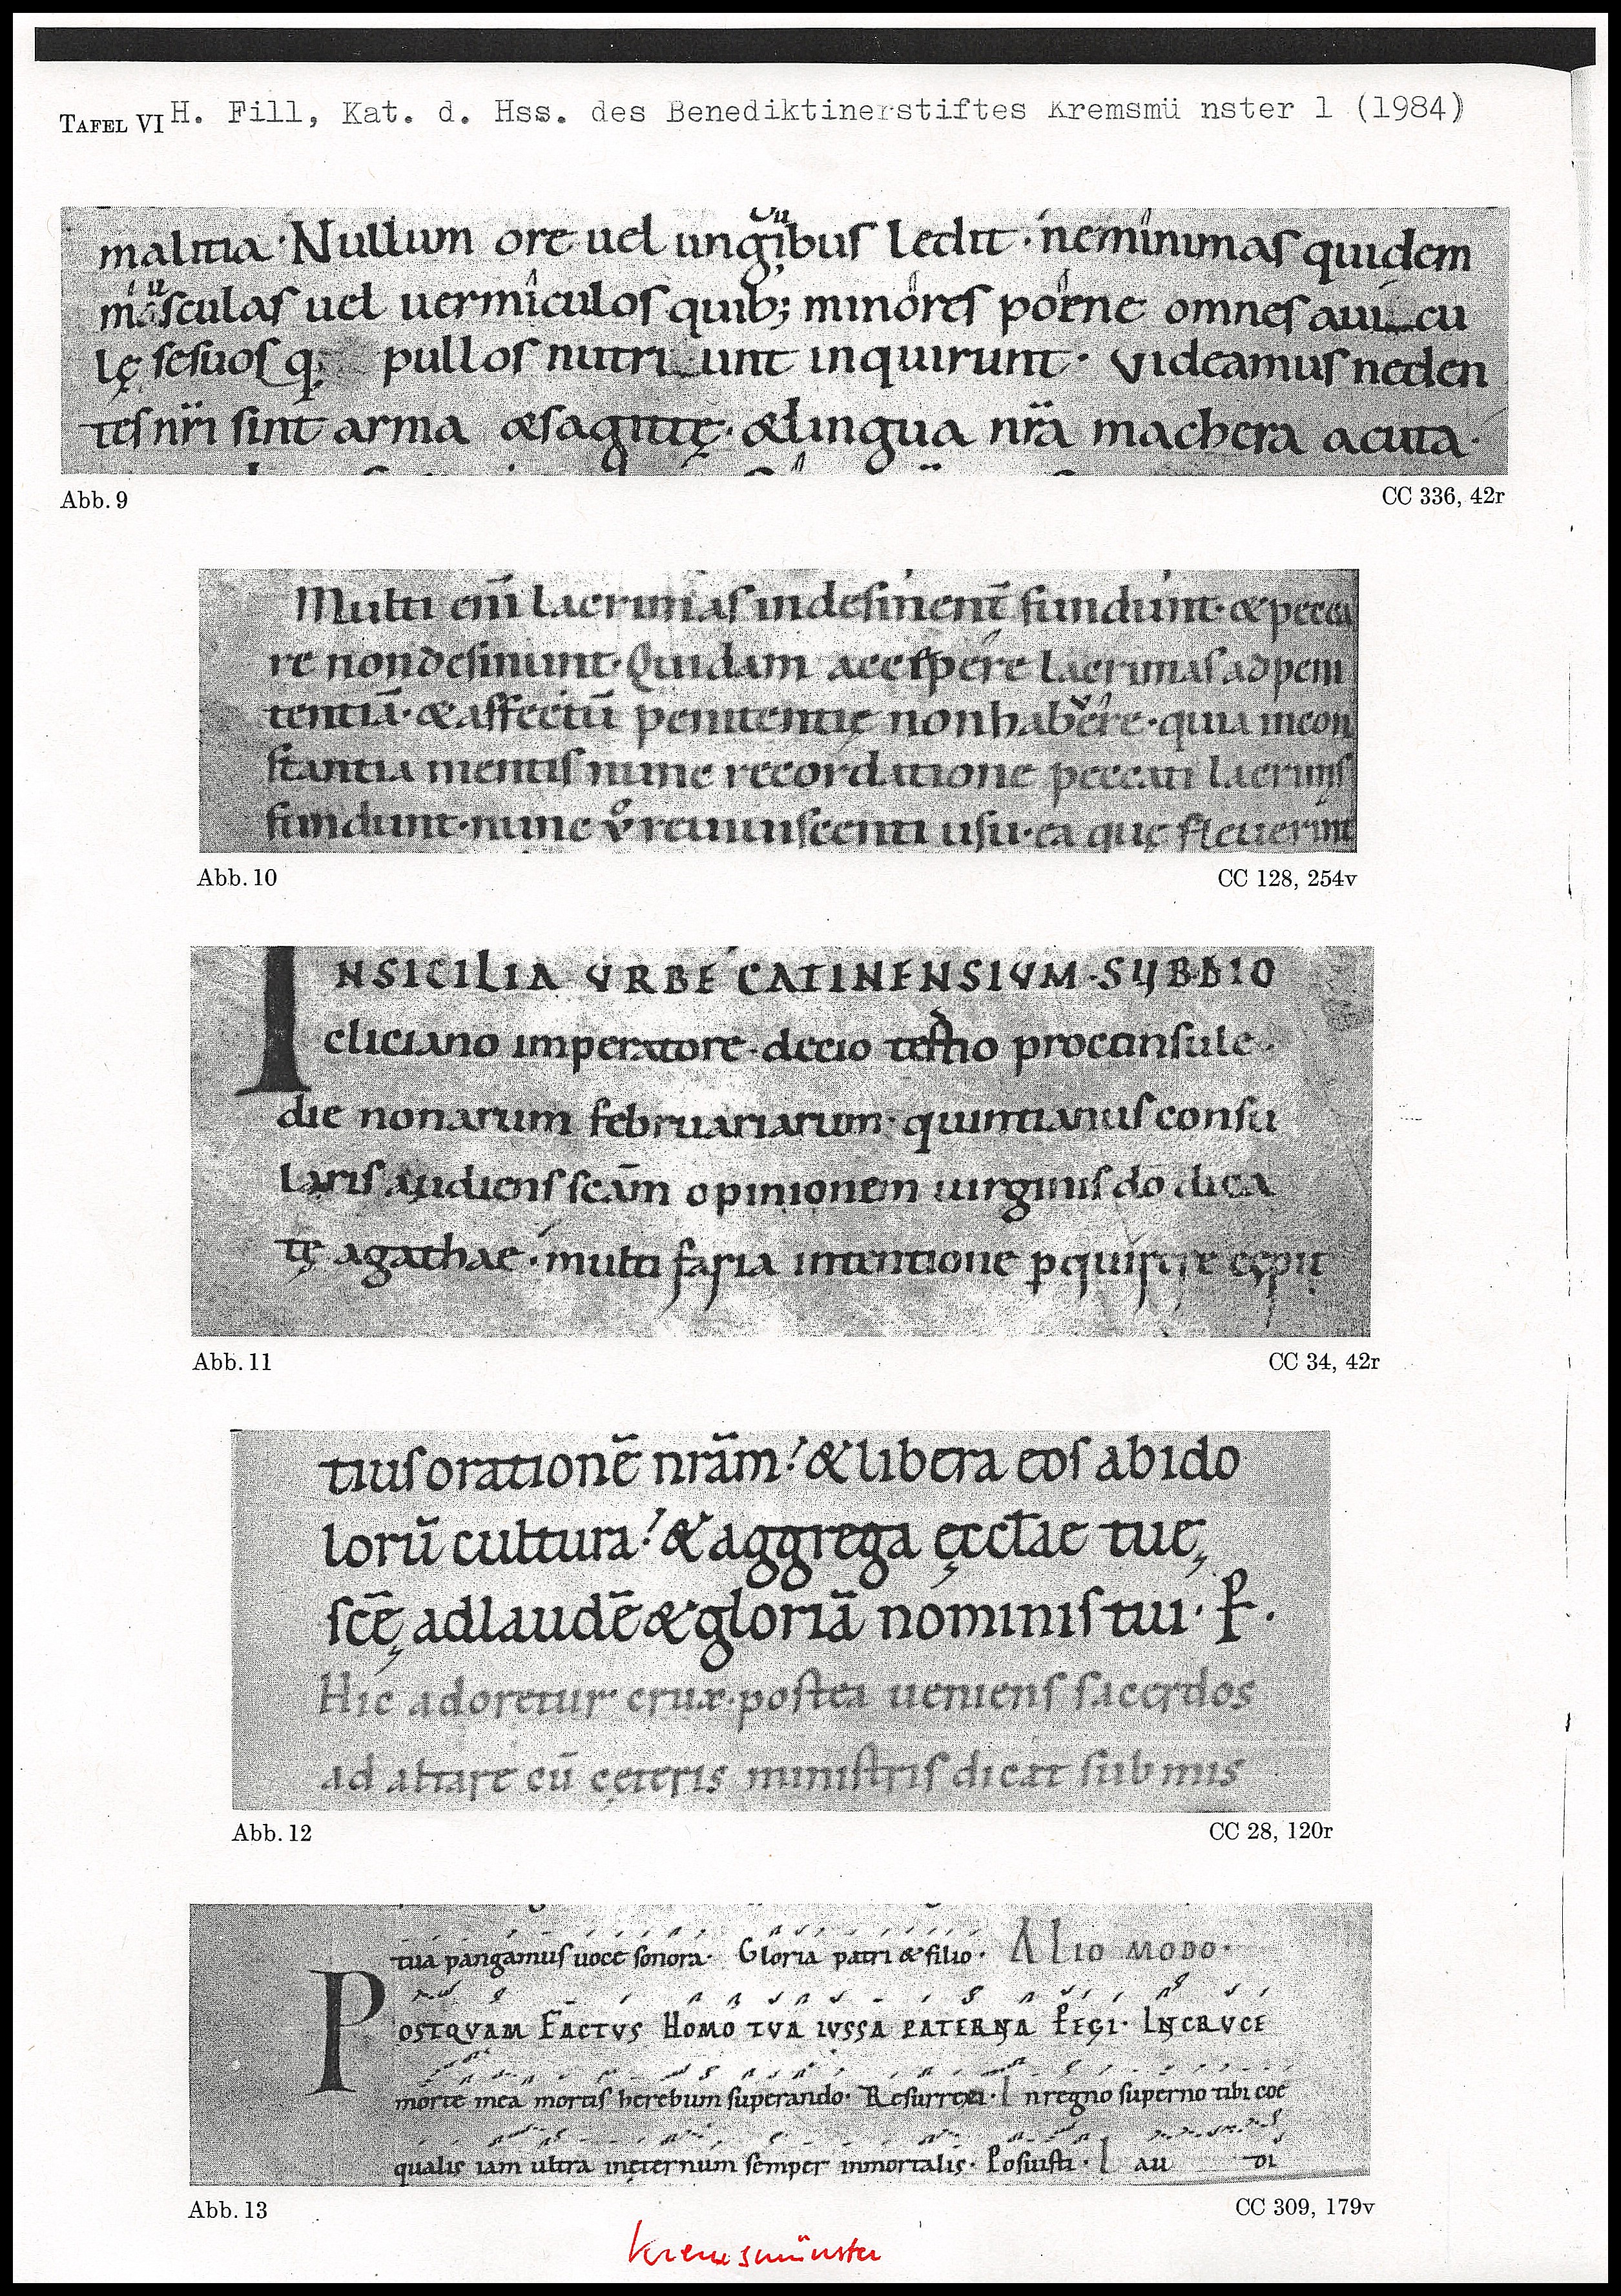 TAFEL VI H. Fill, Kat. d. Hss. des Benediktinerstiftes Kremsmü nster 1 (1984)
malitia · Nullum ore uel ungibus ledit · neminimas quidem
mosculas uel uermiculos quib; minores poene omnes aui cu
lę sesuos q; pullos nutri unt inquirunt · Videamus neden
tes nr̄i sint arma &sagittę · &lingua nr̄a machera acuta ·
Abb. 9
CC 336, 42r
Multi eni̅ lacrimas indesinent̅ fundunt · & pecca
re nondesinunt · Quidam accipere lacrimas ad peni
tentia̅ · & affectu̅ penitentię nonhabere · quia incon
stantia mentis nunc recordatione peccati lacrimas
fundunt · nunc ůo reuiuiscenti usu · ea quę fleuerint
Abb. 10
CC 128, 254v
INSICILIA VRBE CATINENSIVM · SVBDIO
cliciano imperatore · decio tertio proconsule ·
die nonarum februariarum · quintianus consu
laris audiens sca̅m opinionem uirginis do̅ dica
tę agathae · multi faria intentione p̲quirere cępit
Abb. 11
CC 34, 42r
tius oratione̅ nra̅m · & libera eos abido
loru̅ cultura · & aggrega ęccl̅ae tuę
sce̅ę adlaude̅ & gloria̅ nominis tui · P̲ ·
Hic adoretur crux · postea ueniens sacerdos
ad altare cu̅ cęteris ministris dicat submis
Abb. 12
CC 28, 120r
tua pangamus uoce sonora · Gloria patri & filio · ALIO MODO ·
POSTQVAM FACTVS HOMO TVA IVSSA PATERNA PEGI · INCRVCE
morte mea mortis herebum superando · Resurrexi · In regno superno tibi coe
qualis iam ultra inęternum semper inmortalis · Posuisti · I au di
Abb. 13
CC 309, 179v
Kremsmünster